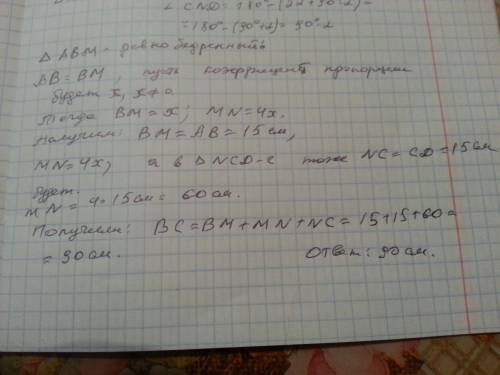 ∠ CND = 180° - (2α + 90° - 2) =
= 180° - (90° + 2) = 90° - 2
Δ ABM - равнобедренность
AB = BM, пусть коэффициент пропорции
будет x, x ≠ 0.
Тогда BM = x; MN = 4x.
Получим: BM = AB = 15 см,
MN = 4x; а в Δ NCD-е тоже NC = CD = 15 см
будет.
MN = 4 · 15 см = 60 см.
Получим: BC = BM + MN + NC = 15 + 15 + 60 =
= 90 см. Ответ: 90 см.